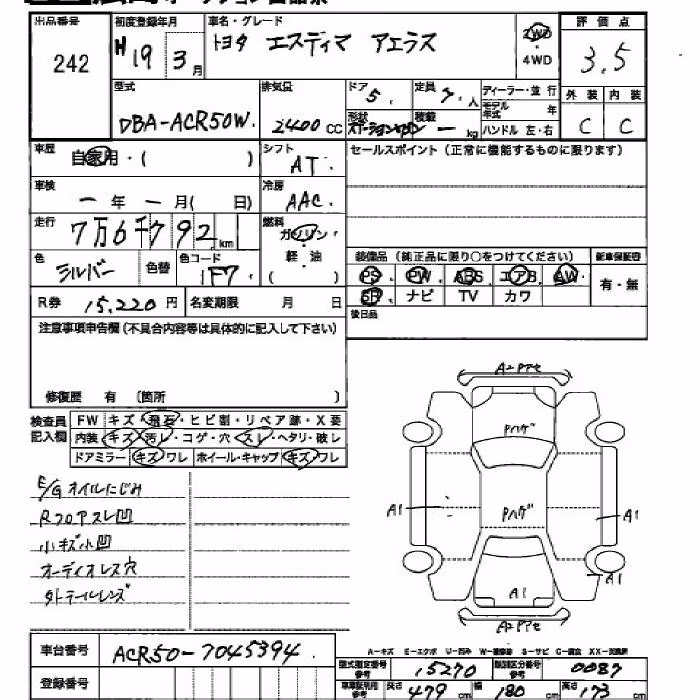 出品番号 初度登録年月 車名・グレード 評価点
242 H19 3月 トヨタ エスティマ アエラス 2WD 4WD 3.5
型式 排気量 ドア 5. 定員 7.人 ディーラー・並行 外装 内装
モデル年式 年
DBA-ACR50W. 2400cc 形状 ステーションワゴン 積載 ー kg ハンドル 左・右 C C
車歴 自家用・( ) シフト AT. セールスポイント(正常に機能するものに限ります)
車検 ー年 ー月( 日) 冷房 AAC.
走行 7万6千792km 燃料 ガソリン・軽・油 ( )
色 シルバー 色替 色コード 1F7. 装備品(純正品に限り○をつけてください) 新車保証書
PS. PW. ABS. エアB. AW. 有・無
SR. ナビ TV カワ
R券 15,220円 名変期限 月 日 後日品
注意事項申告欄(不具合内容等は具体的に記入して下さい)
修復歴 有 〔箇所 〕
検査員記入欄 FW キズ・飛石・ヒビ割・リペア跡・X要
内装 キズ・汚レ・コゲ・穴・スレ・ヘタリ・破レ
ドアミラー キズ・ワレ ホイール・キャップ キズ・ワレ
E/Gオイルにじみ
Rフロアスレ凹
小キズ小凹
オーディオレス穴
外テールレンズ
A2Pアセ
Pハゲ
Pハゲ
A1 A1
A1
A1
A2Pアセ
A-キズ E-エクボ U-凹み S-サビ
車台番号 ACR50-7045394.
登録番号
型式指定番号 参考 15270 類別区分番号 参考 0087
参考 長さ 479cm 幅 180cm 高さ 173cm